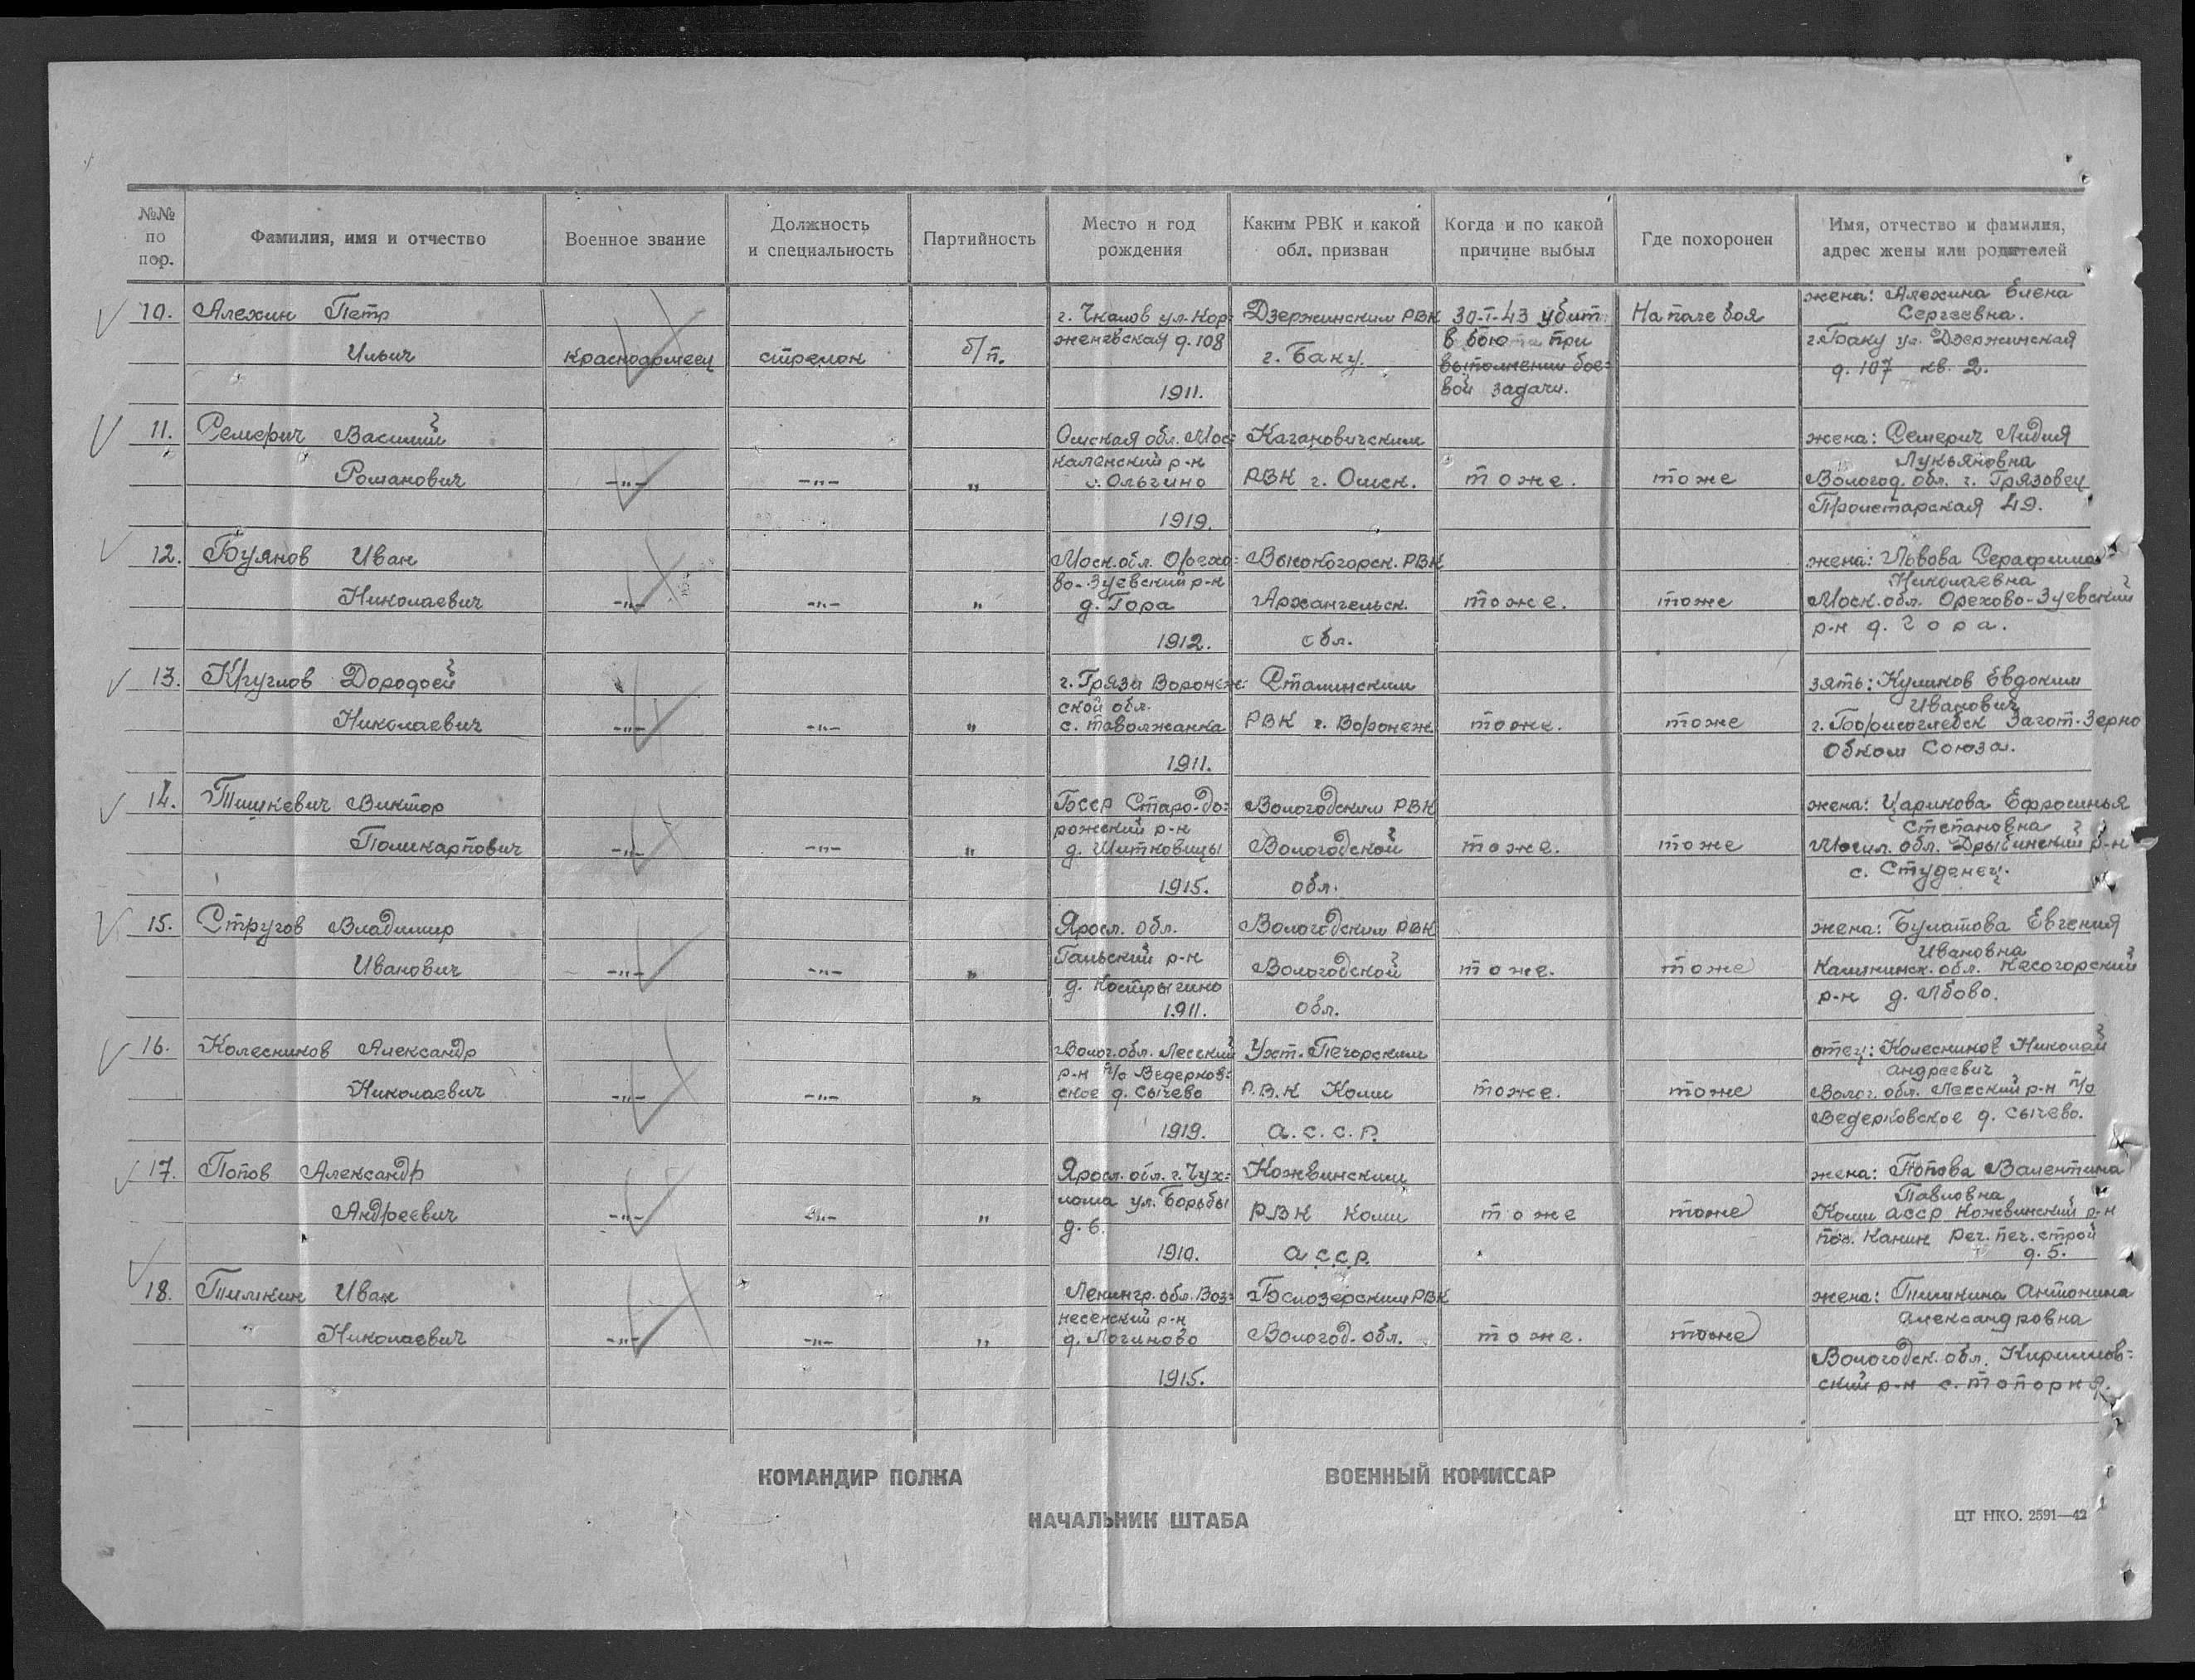 №№ по пор.
Фамилия, имя и отчество
Военное звание
Должность и специальность
Партийность
Место и год рождения
Каким РВК и какой обл. призван
Когда и по какой причине выбыл
Где похоронен
Имя, отчество и фамилия, адрес жены или родителей
10. Алехин Петр
Ильич
красноармеец
стрелок
б/п.
г. Чкалов ул. Кор-
женевская д. 108
1911.
Дзержинским РВК
г. Баку.
30-I-43 убит
в бою при
выполнении бое-
вой задачи.
На поле боя
жена: Алехина Елена
Сергеевна.
г. Баку ул. Дзержинская
д. 107 кв. 2.
11. Семерич Василий
Романович
-"- -"- "
Омская обл. Мос-
каленский р-н
с. Ольгино
1919.
Кагановичским
РВК г. Омск.
тоже.
тоже
жена: Семерич Лидия
Лукьяновна
Вологод. обл. г. Грязовец
Пролетарская 49.
12. Буянов Иван
Николаевич
-"- -"- "
Моск. обл. Орехо-
во-Зуевский р-н
д. Гора
1912.
Высокогорск. РВК
Архангельск.
обл.
тоже.
тоже
жена: Львова Серафима
Николаевна
Моск. обл. Орехово-Зуевский
р-н д. Гора.
13. Круглов Дородой
Николаевич
-"- -"- "
г. Грязи Воронеж-
ской обл.
с. Таволжанка
1911.
Сталинским
РВК г. Воронеж
тоже.
тоже
зять: Куликов Евдоким
Иванович
г. Борисоглебск Загот-Зерно
Обком Союза.
14. Тишкевич Виктор
Поликарпович
-"- -"- "
Бсср Старо-до-
рожский р-н
д. Шитковицы
1915.
Вологодским РВК
Вологодской
обл.
тоже.
тоже
жена: Царикова Ефросинья
Степановна
Могил. обл. Дрыбинский р-н
с. Студенец.
15. Стругов Владимир
Иванович
-"- -"- "
Яросл. обл.
Гальский р-н
д. Кострыгино
1911.
Вологодским РВК
Вологодской
обл.
тоже.
тоже
жена: Булатова Евгения
Ивановна
Калининск. обл. Кесогорский
р-н д. Лбово.
16. Колесников Александр
Николаевич
-"- -"- "
Волог. обл. Лесский
р-н п/о Ведерков-
ское д. Сычево
1919.
Ухт-Печорским
Р.В.К Коми
а.с.с.р.
тоже.
тоже
отец: Колесников Николай
Андреевич
Волог. обл. Лесский р-н п/о
Ведерковское д. Сычево.
17. Попов Александр
Андреевич
-"- -"- "
Яросл. обл. г. Чух-
лома ул. Борьбы
д. 6.
1910.
Кожвинским
РВК Коми
асср
тоже
тоже
жена: Попова Валентина
Павловна
Коми асср Кожвинский р-н
пос. Канин Реч. печ. строй
д. 5.
18. Тилкин Иван
Николаевич
-"- -"- "
Ленингр. обл. Воз-
несенский р-н
д. Логиново
1915.
Белозерским РВК
Вологод. обл.
тоже.
тоже
жена: Тилкина Антонина
Александровна
Вологодск. обл. Кириллов-
ский р-н с. Топорня.
КОМАНДИР ПОЛКА
ВОЕННЫЙ КОМИССАР
НАЧАЛЬНИК ШТАБА
ЦТ НКО. 2591—42